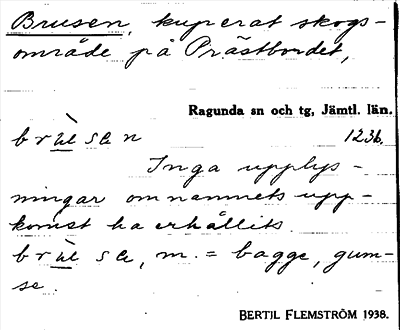 Brusen, kuperat skogs-
område på Prästbordet,
Ragunda sn och tg, Jämtl. län.
1236.
Inga upplys-
ningar om namnets upp-
komst ha erhållits.
m. = bagge, gum-
se.
BERTIL FLEMSTRÖM 1938.